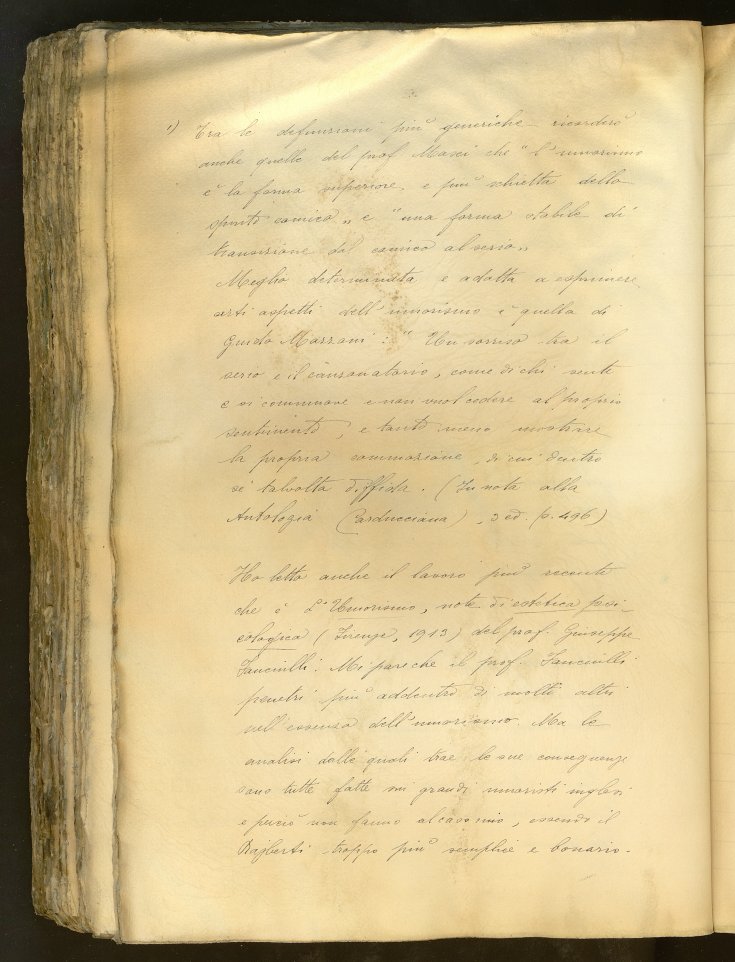 1) Tra le definizioni più generiche ricorderò
anche quelle del prof Masci che "l'umorismo
è la forma superiore e più schietta dello
spirito comico„ e "una forma stabile di
transizione dal comico al serio„
Meglio determinata e adatta a esprimere
certi aspetti dell'umorismo è quella di
Guido Mazzoni: "Un sorriso tra il
serio e il canzonatorio, come di chi sente
e si commuove e non vuol cedere al proprio
sentimento, e tanto meno mostrare
la propria commozione, di cui dentro
sé talvolta diffida. (In nota alla
Antologia (Carducciana), 3 ed. p. 496)
Ho letto anche il lavoro più recente
che è L'Umorismo, note di estetica psi-
cologica (Firenze, 1913) del prof. Giuseppe
Fanciulli. Mi pare che il prof. Fanciulli
penetri più addentro di molti altri
nell'essenza dell'umorismo. Ma le
analisi dalle quali trae le sue conseguenze
sono tutte fatte sui grandi umoristi inglesi
e perciò non fanno al caso mio, essendo il
Rajberti troppo più semplice e bonario.